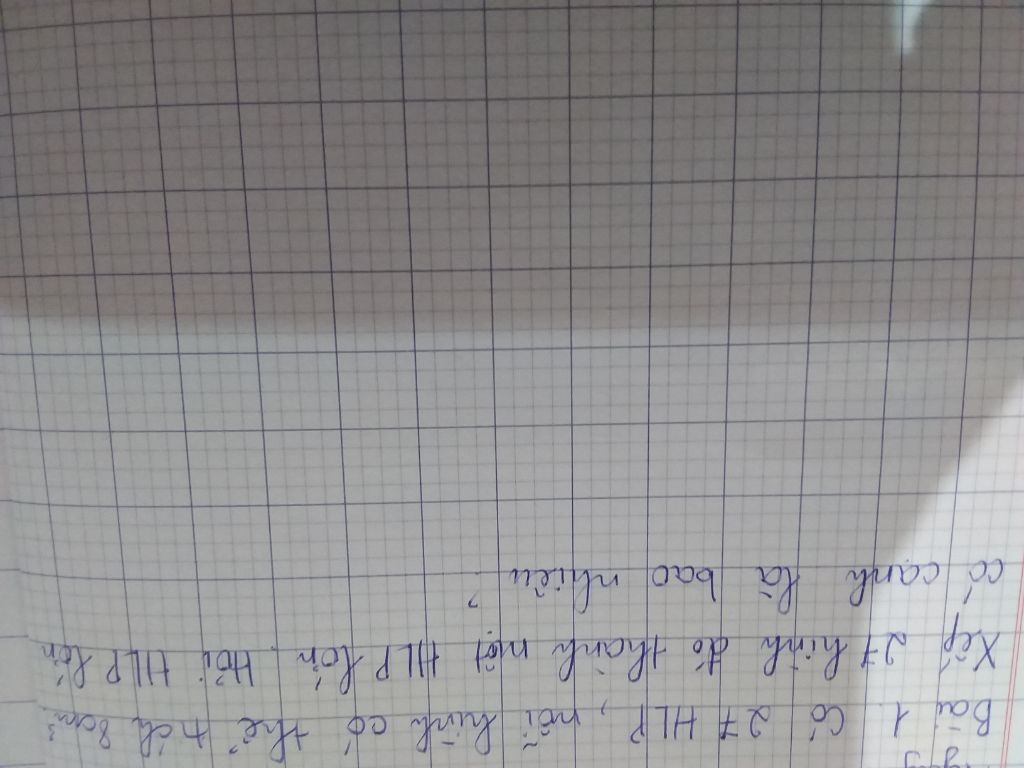 Bài 1. Có 27 HLP, mỗi hình có thể tích 8cm³
Xếp 27 hình đó thành một HLP lớn. Hỏi HLP lớn
có cạnh là bao nhiêu?